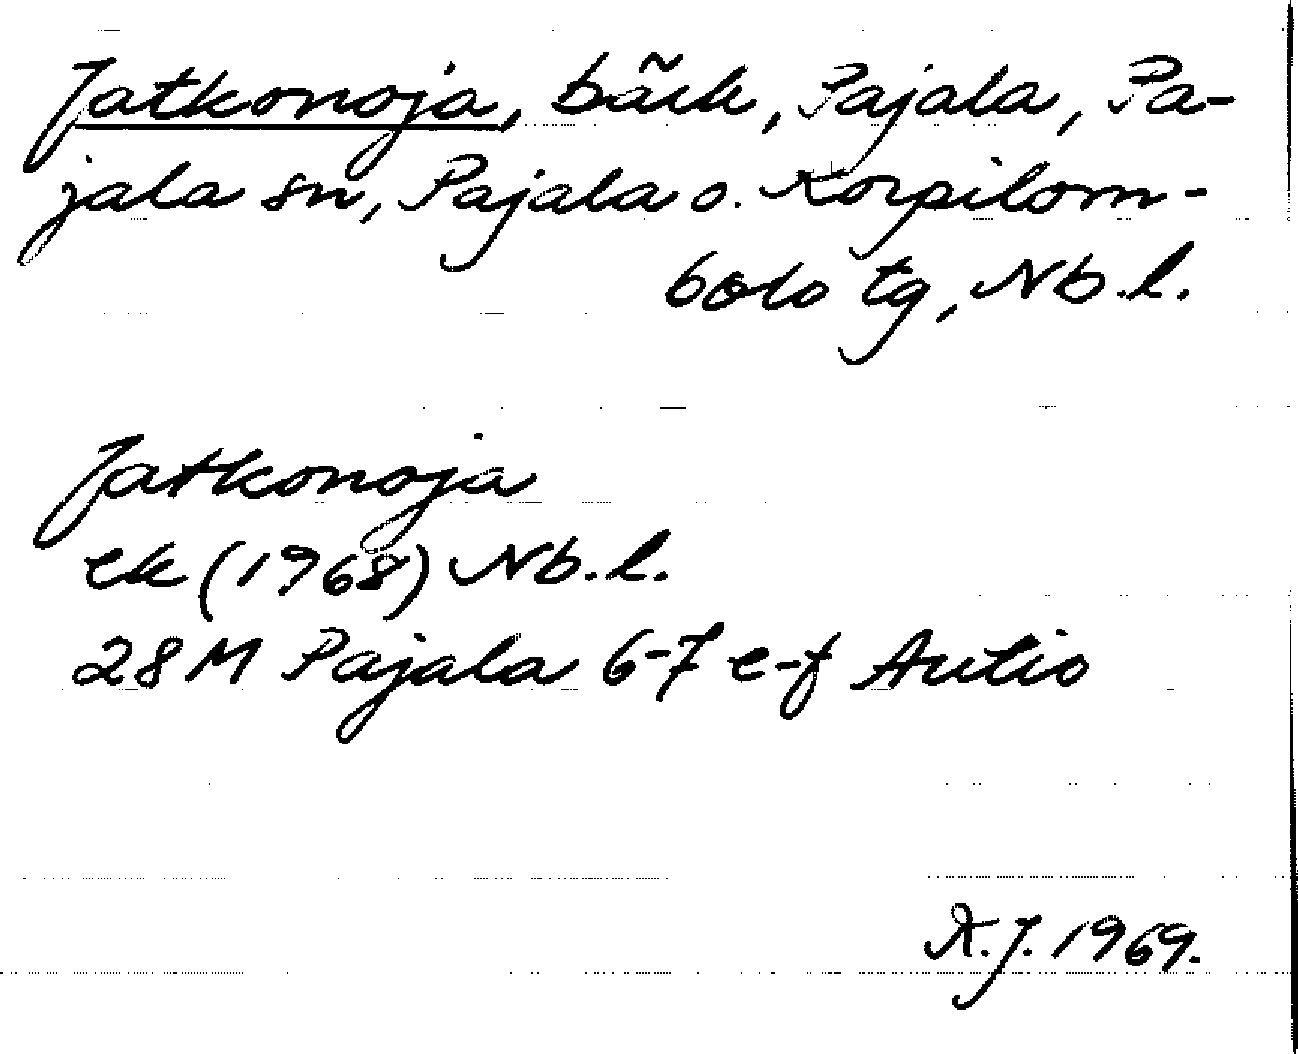 Jatkonoja, bäck, Pajala, Pa-
jala sn, Pajala o. Korpilom-
bolo tg, Nb.l.
Jatkonoja
ek (1968) Nb.l.
28M Pajala 6-7 e-f Autio
A.J. 1969.